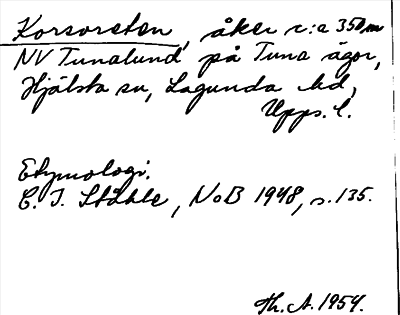 Korsorsten, åker c:a 350 m
NV Tunalund på Tuna ägor,
Hjälsta sn, Lagunda hd,
Upps. l.
Etymologi.
C. I. Ståhle, NoB 1948, s. 135.
Th. A. 1954.